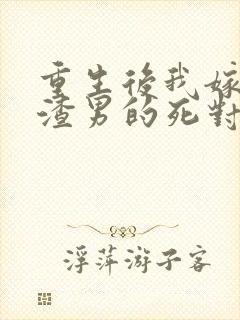 重生後我嫁
渣男的死對
浮萍游子客